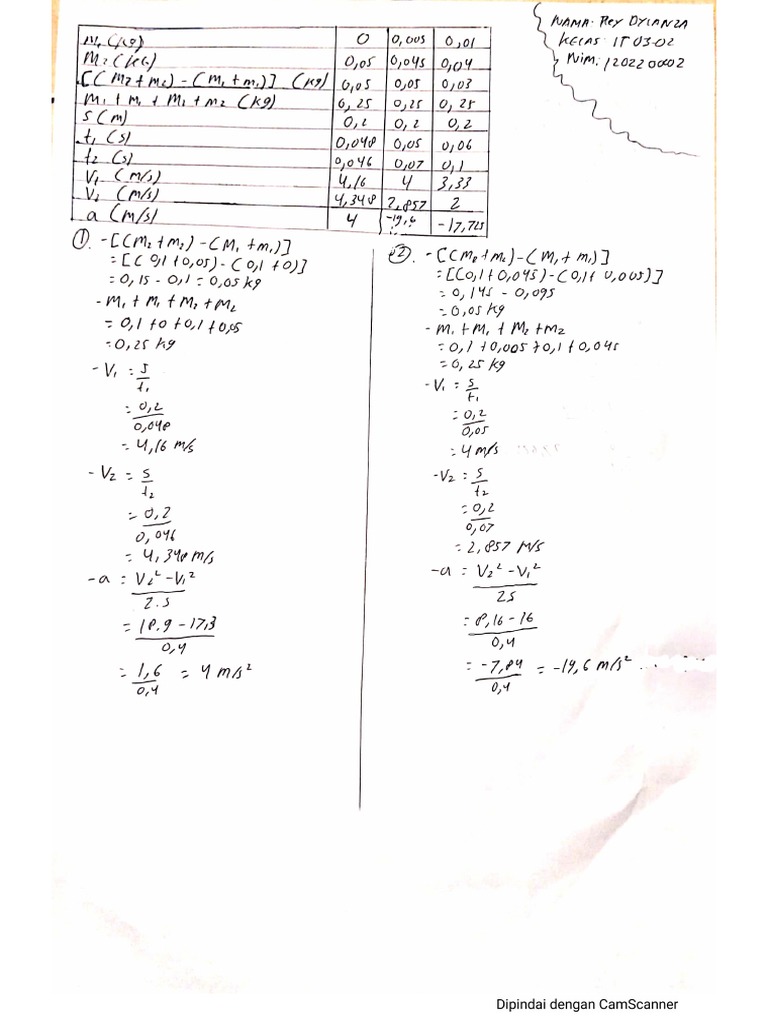 NAMA: Rey DYLANZA
KELAS: IT 03-02
Nim: 120220002
m₁ (kg) 0 0,005 0,01
m₂ (kg) 0,05 0,045 0,04
[(M2+m₂) - (M₁+m₁)] (kg) 0,05 0,05 0,03
m₁ + M₁ + M₂ + m₂ (kg) 0,25 0,25 0,25
s (m) 0,2 0,2 0,2
t₁ (s) 0,048 0,05 0,06
t₂ (s) 0,046 0,07 0,1
V₁ (m/s) 4,16 4 3,33
V₂ (m/s) 4,348 2,857 2
a (m/s) 4 -19,6 -17,725
①. - [(M₂+m₂) - (M₁+m₁)]
= [(0,1+0,05) - (0,1+0)]
= 0,15 - 0,1 = 0,05 kg
- M₁ + m₁ + M₂ + M₂
= 0,1 + 0 + 0,1 + 0,05
= 0,25 kg
- V₁ = s/t₁
= 0,2/0,048
= 4,16 m/s
- V₂ = s/t₂
= 0,2/0,046
= 4,348 m/s
- a = V₂² - V₁² / 2.s
= 18.9 - 17,3 / 0,4
= 1,6/0,4 = 4 m/s²
②. - [(M₂+m₂) - (M₁+m₁)]
= [(0,1+0,045) - (0,1+0,005)]
= 0,145 - 0,095
= 0,05 kg
- M₁ + M₁ + M₂ + m₂
= 0,1 + 0,005 + 0,1 + 0,045
= 0,25 kg
- V₁ = s/t₁
= 0,2/0,05
= 4 m/s
- V₂ = s/t₂
= 0,2/0,07
= 2,857 M/s
- a = V₂² - V₁² / 2s
= 8,16 - 16 / 0,4
= -7,84/0,4 = -19,6 m/s²
Dipindai dengan CamScanner